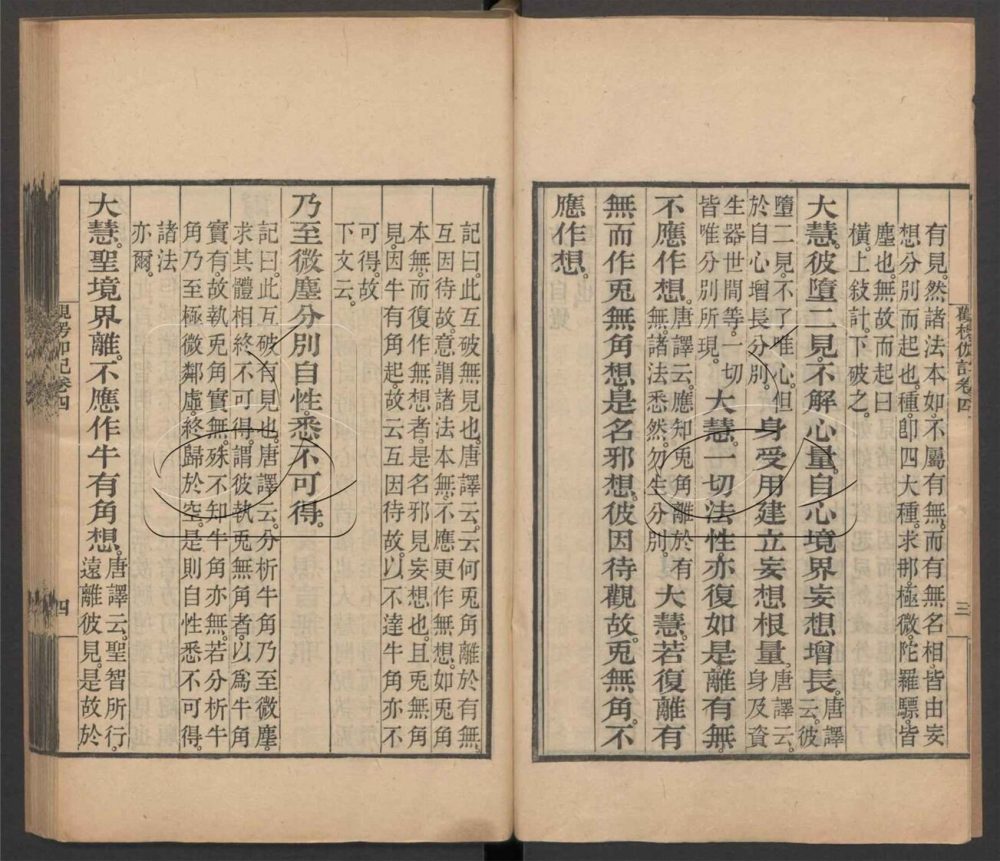 有見。然諸法本如。不屬有無。而有無名相。皆由妄
想分別而起也。種。卽四大種。求那極微。陀羅驃。皆
塵也。無故而起曰
橫。上敍計。下破之。
大慧。彼墮二見。不解心量。自心境界妄想增長。唐譯云。彼
墮二見。不了唯心。但
於自心增長分別。
身受用建立妄想根量。唐譯云。身及資
生器世間等。一切
皆唯分別所現。
大慧。一切法性。亦復如是。離有無。
不應作想。唐譯云。應知兔角離於有
無。諸法悉然。勿生分別。
大慧。若復離有
無而作兎無角想。是名邪想。彼因待觀故。兎無角。不
應作想。
三
記曰。此互破無見也。唐譯云。云何兎角離於有無。
互因待故。意謂諸法本無。不應更作無想。如兎角
本無。而復作無想者。是名邪見妄想也。且兎無角
見。因牛有角起。故云互因待故。以不達牛角亦不
可得。故
下文云。
乃至微塵分別自性。悉不可得。
記曰。此互破有見也。唐譯云。分析牛角乃至微塵。
求其體相。終不可得。謂彼執兎無角者。以爲牛角
實有。故執兎角實無。殊不知牛角亦無。若分析牛
角乃至極微鄰虛。終歸於空。是則自性悉不可得。
諸法
亦爾。
大慧。聖境界離。不應作牛有角想。唐譯云。聖智所行。
遠離彼見。是故於
卷四
四